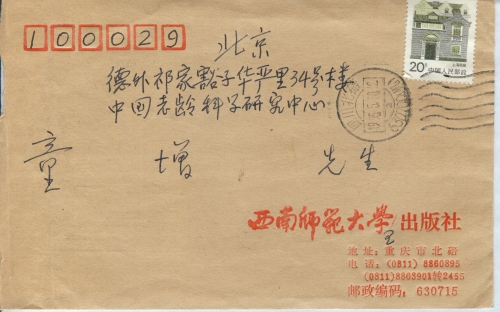 100029
北京
德外祁家豁子华严里34号楼
中国老龄科学研究中心
童增 先生
20分
上海民居
中国人民邮政
西南师范大学出版社
王
地址：重庆市北碚
电话：(0811) 8860895
(0811)8803901转2455
邮政编码：630715